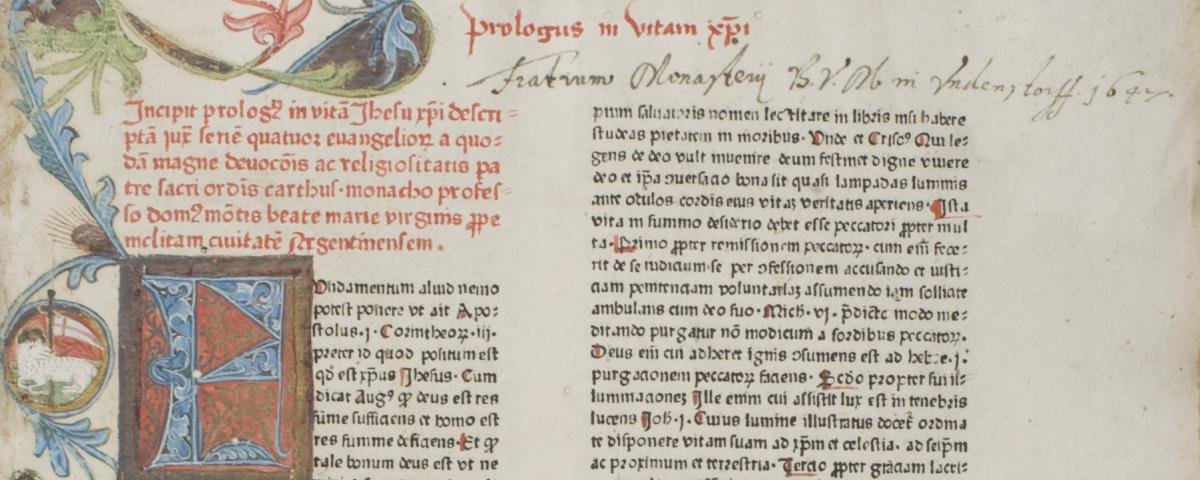 Prologus in vitam xp̄i
Fratrum Monasterij B. V. M in Yndenstorff. 1647.
Incipit prologꝰ in vitā Jhesu xp̄i descri-
ptā iux̄ seriē quatuor euangelioꝝ a quo-
dā magne deuoc̄ōis ac religiositatis pa
tre sacri ordīs carthus· monacho profes-
so domꝰ mōtis beate marie virginis ꝓpe
inclitam ciuitatē Argentinensem.
FVndamentum aliud nemo
potest ponere vt ait Apo-
stolus·i·Corintheoꝝ·iii·
preter id quod positum est
qd̄ est xp̄us Jhesus· Cum
dicat Augꝰ ꝙ deus est res
sūme sufficiens et homo est
res summe deficiens· Et ꝙ
tale bonum deus est vt ne
pium saluatoris nomen lectitare in libris ms̄i habere
studeas pietatem in moribus· Vnde et Crisoꝰ Qui le-
gens de deo vult inuenire deum festinet digne viuere
deo et ip̄a ꝯuersacio bona sit quasi lampadas luminis
ante oculos cordis eius vitaꝫ veritatis aperiens· Ista
vita in summo desiderio debet esse peccatori ꝓpter mul
ta· Primo ꝓpter remissionem peccatoꝝ· cum em̄ fece-
rit de se iudicium·se per ꝯfessionem accusando et iusti-
ciam penitenciam voluntariaꝫ assumendo iam sollicite
ambulans cum deo suo· Mich·vi· p̄dicto modo me-
ditando purgatur nō modicum a sordibus peccatoꝝ·
Deus em̄ cui adheret ignis ꝯsumens est ad heb·
purgacionem peccatoꝝ faciens· Scd̄o propter sui il-
luminacioneꝫ Ille enim cui assistit lux est in tenebris
lucens Joh·i· Cuius lumine illustratus docet̄ ordina
te disponere vitam suam ad xp̄m et celestia· ad seip̄m
ac proximum et terrestria· Tercio ꝓpter graciam lacri-